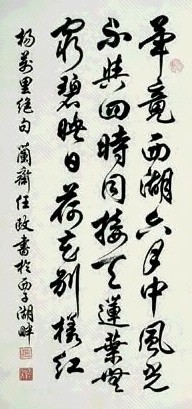 畢竟西湖六月中風光
不與四時同接天蓮葉無
窮碧映日荷花別樣紅
楊萬里絕句 蘭齋任政書於西子湖畔